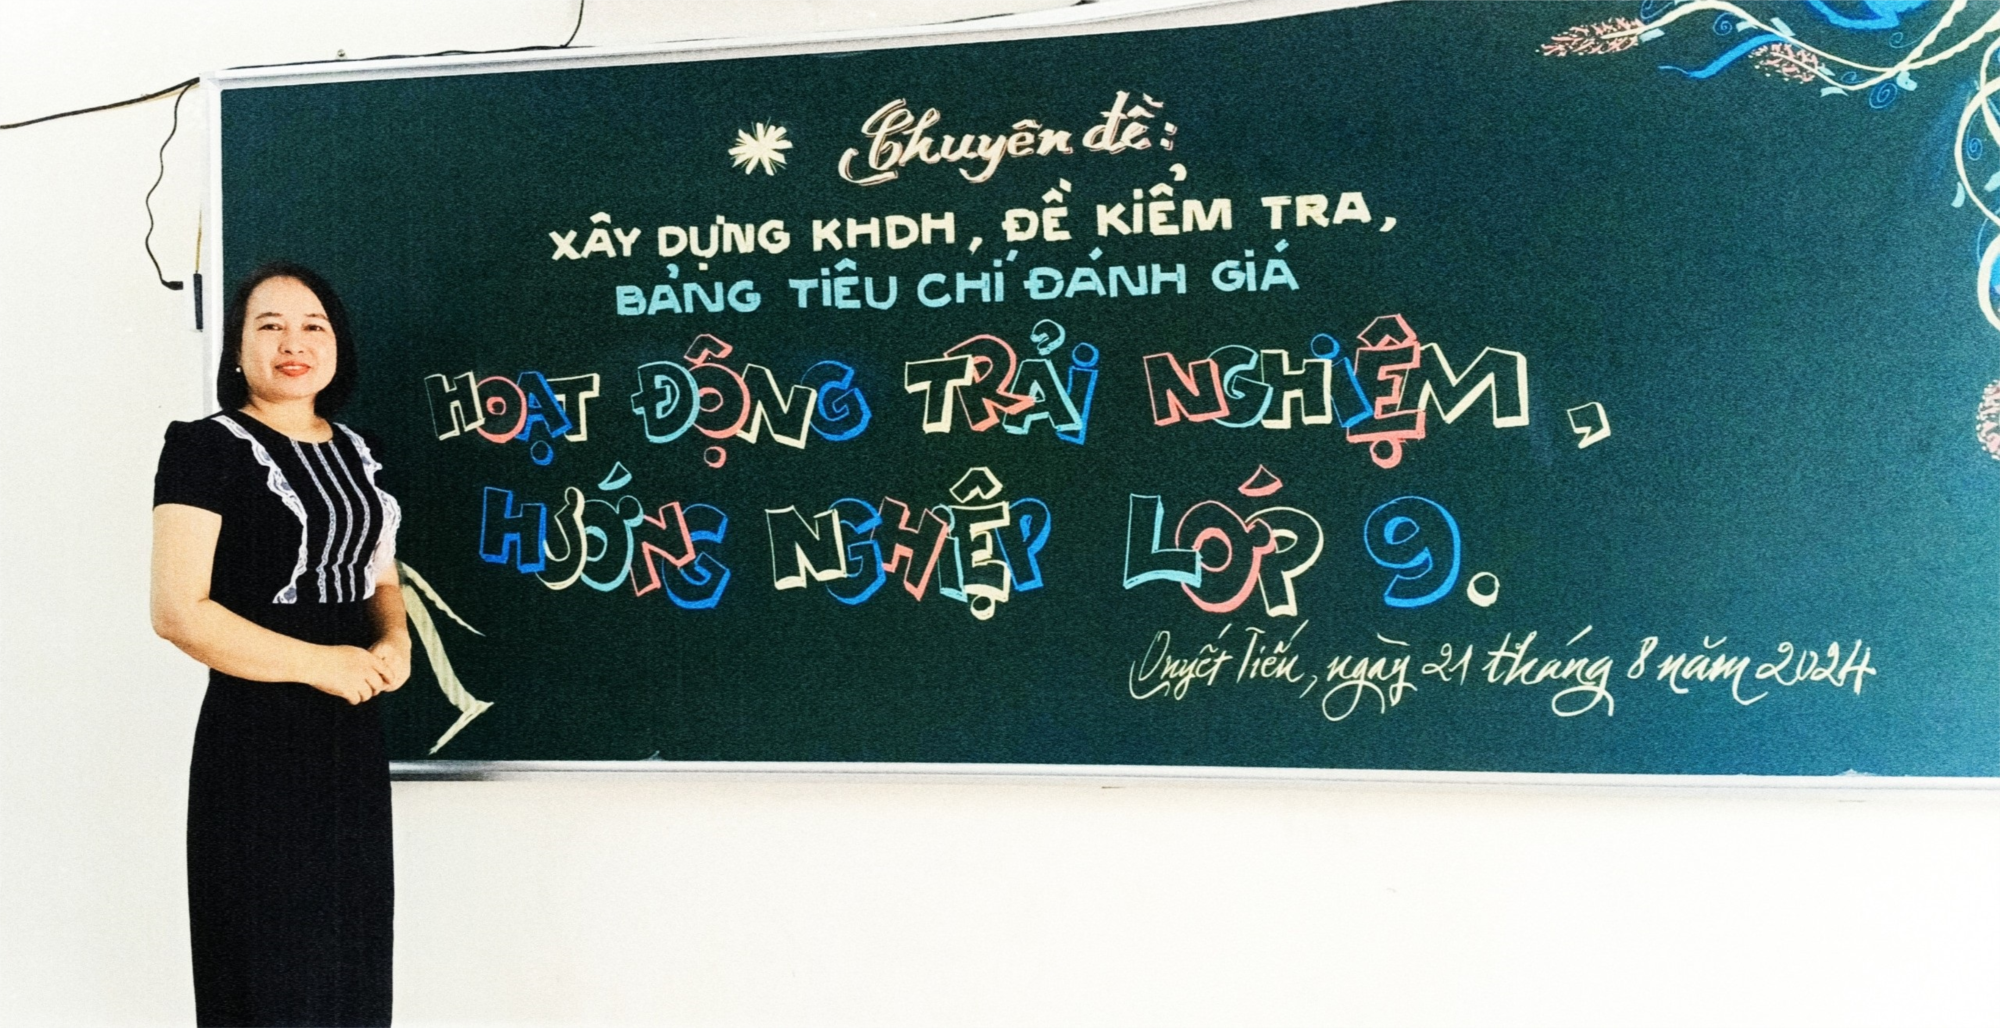 Chuyên đề:
XÂY DỰNG KHDH, ĐỀ KIỂM TRA,
BẢNG TIÊU CHÍ ĐÁNH GIÁ
HOẠT ĐỘNG TRẢI NGHIỆM,
HƯỚNG NGHIỆP LỚP 9.
Quyết Tiến, ngày 21 tháng 8 năm 2024